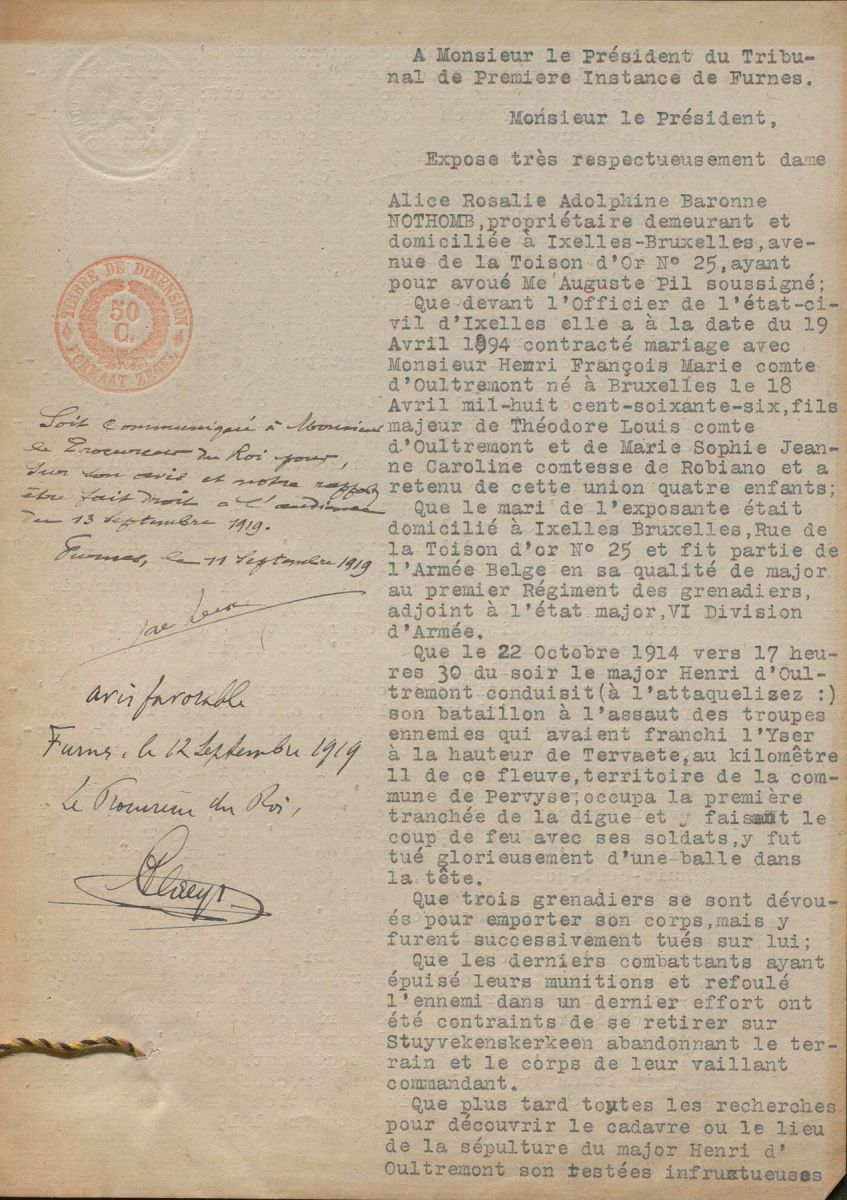 A Monsieur le Président du Tribu-
nal de Premiere Instance de Furnes.
Monsieur le Président,
Expose très respectueusement dame
Alice Rosalie Adolphine Baronne
NOTHOMB,propriétaire demeurant et
domiciliée à Ixelles-Bruxelles,ave-
nue de la Toison d'Or Nº 25,ayant
pour avoué Me Auguste Pil soussigné;
Que devant l'Officier de l'état-ci-
vil d'Ixelles elle a à la date du 19
Avril 1894 contracté mariage avec
Monsieur Henri François Marie comte
d'Oultremont né à Bruxelles le 18
Avril mil-huit cent-soixante-six,fils
majeur de Théodore Louis comte
d'Oultremont et de Marie Sophie Jean-
ne Caroline comtesse de Robiano et a
retenu de cette union quatre enfants;
Que le mari de l'exposante était
domicilié à Ixelles Bruxelles,Rue de
la Toison d'or Nº 25 et fit partie de
l'Armée Belge en sa qualité de major
au premier Régiment des grenadiers,
adjoint à l'état major,VI Division
d'Armée.
Que le 22 Octobre 1914 vers 17 heu-
res 30 du soir le major Henri d'Oul-
tremont conduisit(à l'attaquelizez :)
son bataillon à l'assaut des troupes
ennemies qui avaient franchi l'Yser
à la hauteur de Tervaete,au kilomêtre
11 de ce fleuve,territoire de la com-
mune de Pervyse;occupa la première
tranchée de la digue et y faisant le
coup de feu avec ses soldats,y fut
tué glorieusement d'une balle dans
la tête.
Que trois grenadiers se sont dévou-
és pour emporter son corps,mais y
furent successivement tués sur lui;
Que les derniers combattants ayant
épuisé leurs munitions et refoulé
l'ennemi dans un dernier effort ont
été contraints de se retirer sur
Stuyvekenskerkeen abandonnant le ter-
rain et le corps de leur vaillant
commandant.
Que plus tard toutes les recherches
pour découvrir le cadavre ou le lieu
de la sépulture du major Henri d'
Oultremont son restées infructueuses
TIMBRE DE DIMENSION
50
C.
FORMAAT ZEGEL
Soit communiqué à Monsieur
le Procureur du Roi pour,
sur son avis et notre rapport,
être fait droit a l'audience
du 13 Septembre 1919.
Furnes, le 11 Septembre 1919
avis favorable
Furnes, le 12 Septembre 1919
Le Procureur du Roi,